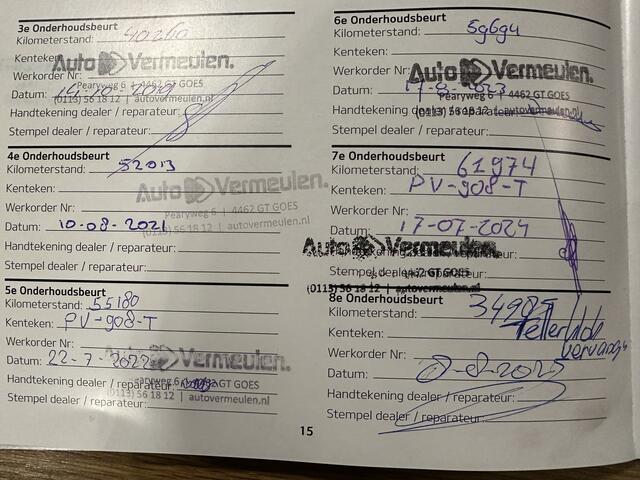 3e Onderhoudsbeurt
Kilometerstand: 40260
Kenteken:
Auto Vermeulen.
Werkorder Nr:
Pearyweg 6 | 4462 GT GOES
Datum:
(0113) 56 18 12 | autovermeulen.nl
Handtekening dealer / reparateur:
Stempel dealer / reparateur:
4e Onderhoudsbeurt
Kilometerstand: 52013
Kenteken:
Auto Vermeulen.
Werkorder Nr:
Pearyweg 6 | 4462 GT GOES
Datum: 10-08-2021
(0113) 56 18 12 | autovermeulen.nl
Handtekening dealer / reparateur:
Stempel dealer / reparateur:
5e Onderhoudsbeurt
Kilometerstand: 55180
Kenteken: PV-908-T
Werkorder Nr:
Auto Vermeulen.
Datum: 22-7-2022
Pearyweg 6 | 4462 GT GOES
Handtekening dealer / reparateur:
(0113) 56 18 12 | autovermeulen.nl
Stempel dealer / reparateur:
6e Onderhoudsbeurt
Kilometerstand: 59694
Kenteken:
Auto Vermeulen.
Werkorder Nr:
Datum: 17-8-2023
Pearyweg 6 | 4462 GT GOES
Handtekening dealer / reparateur:
(0113) 56 18 12 | autovermeulen.nl
Stempel dealer / reparateur:
7e Onderhoudsbeurt
Kilometerstand: 61974
Kenteken: PV-908-T
Werkorder Nr:
Datum: 17-07-2024
Auto Vermeulen.
Handtekening dealer / reparateur:
Stempel dealer / reparateur:
4462 GT GOES
(0113) 56 18 12 | autovermeulen.nl
8e Onderhoudsbeurt
Kilometerstand: 34985
Kenteken:
Teller
Werkorder Nr:
Datum: 8-8-2025
Handtekening dealer / reparateur:
Stempel dealer / reparateur:
15